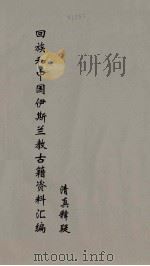 回族和中国伊斯兰教古籍资料汇编
清真释疑
www.mtoou.info